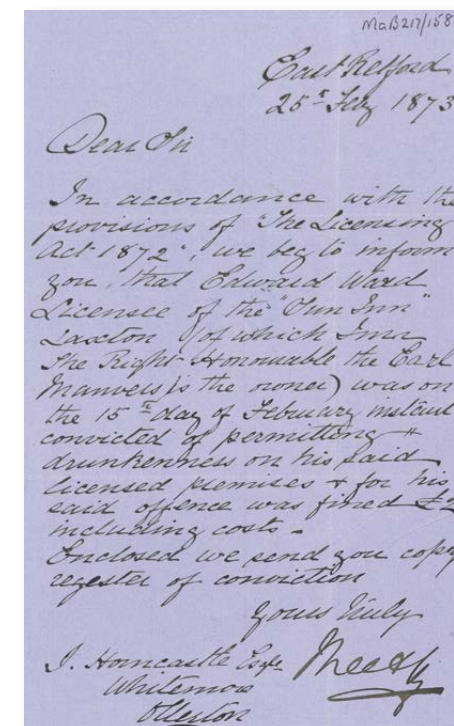 MaB217/158
East Retford
25th Feby 1873
Dear Sir
In accordance with the
provisions of "The Licensing
Act 1872", we beg to inform
you, that Edward Ward
Licensee of the "Sun Inn"
Laxton (of which Inn
The Right Honourable the Earl
Manvers is the owner) was on
the 15th day of February instant
convicted of permitting
drunkenness on his said
licensed premises & for his
said offence was fined £2
including costs -
Enclosed we send you copy
register of conviction
Yours truly
J. Horncastle Esqre
Whitemoor
Ollerton